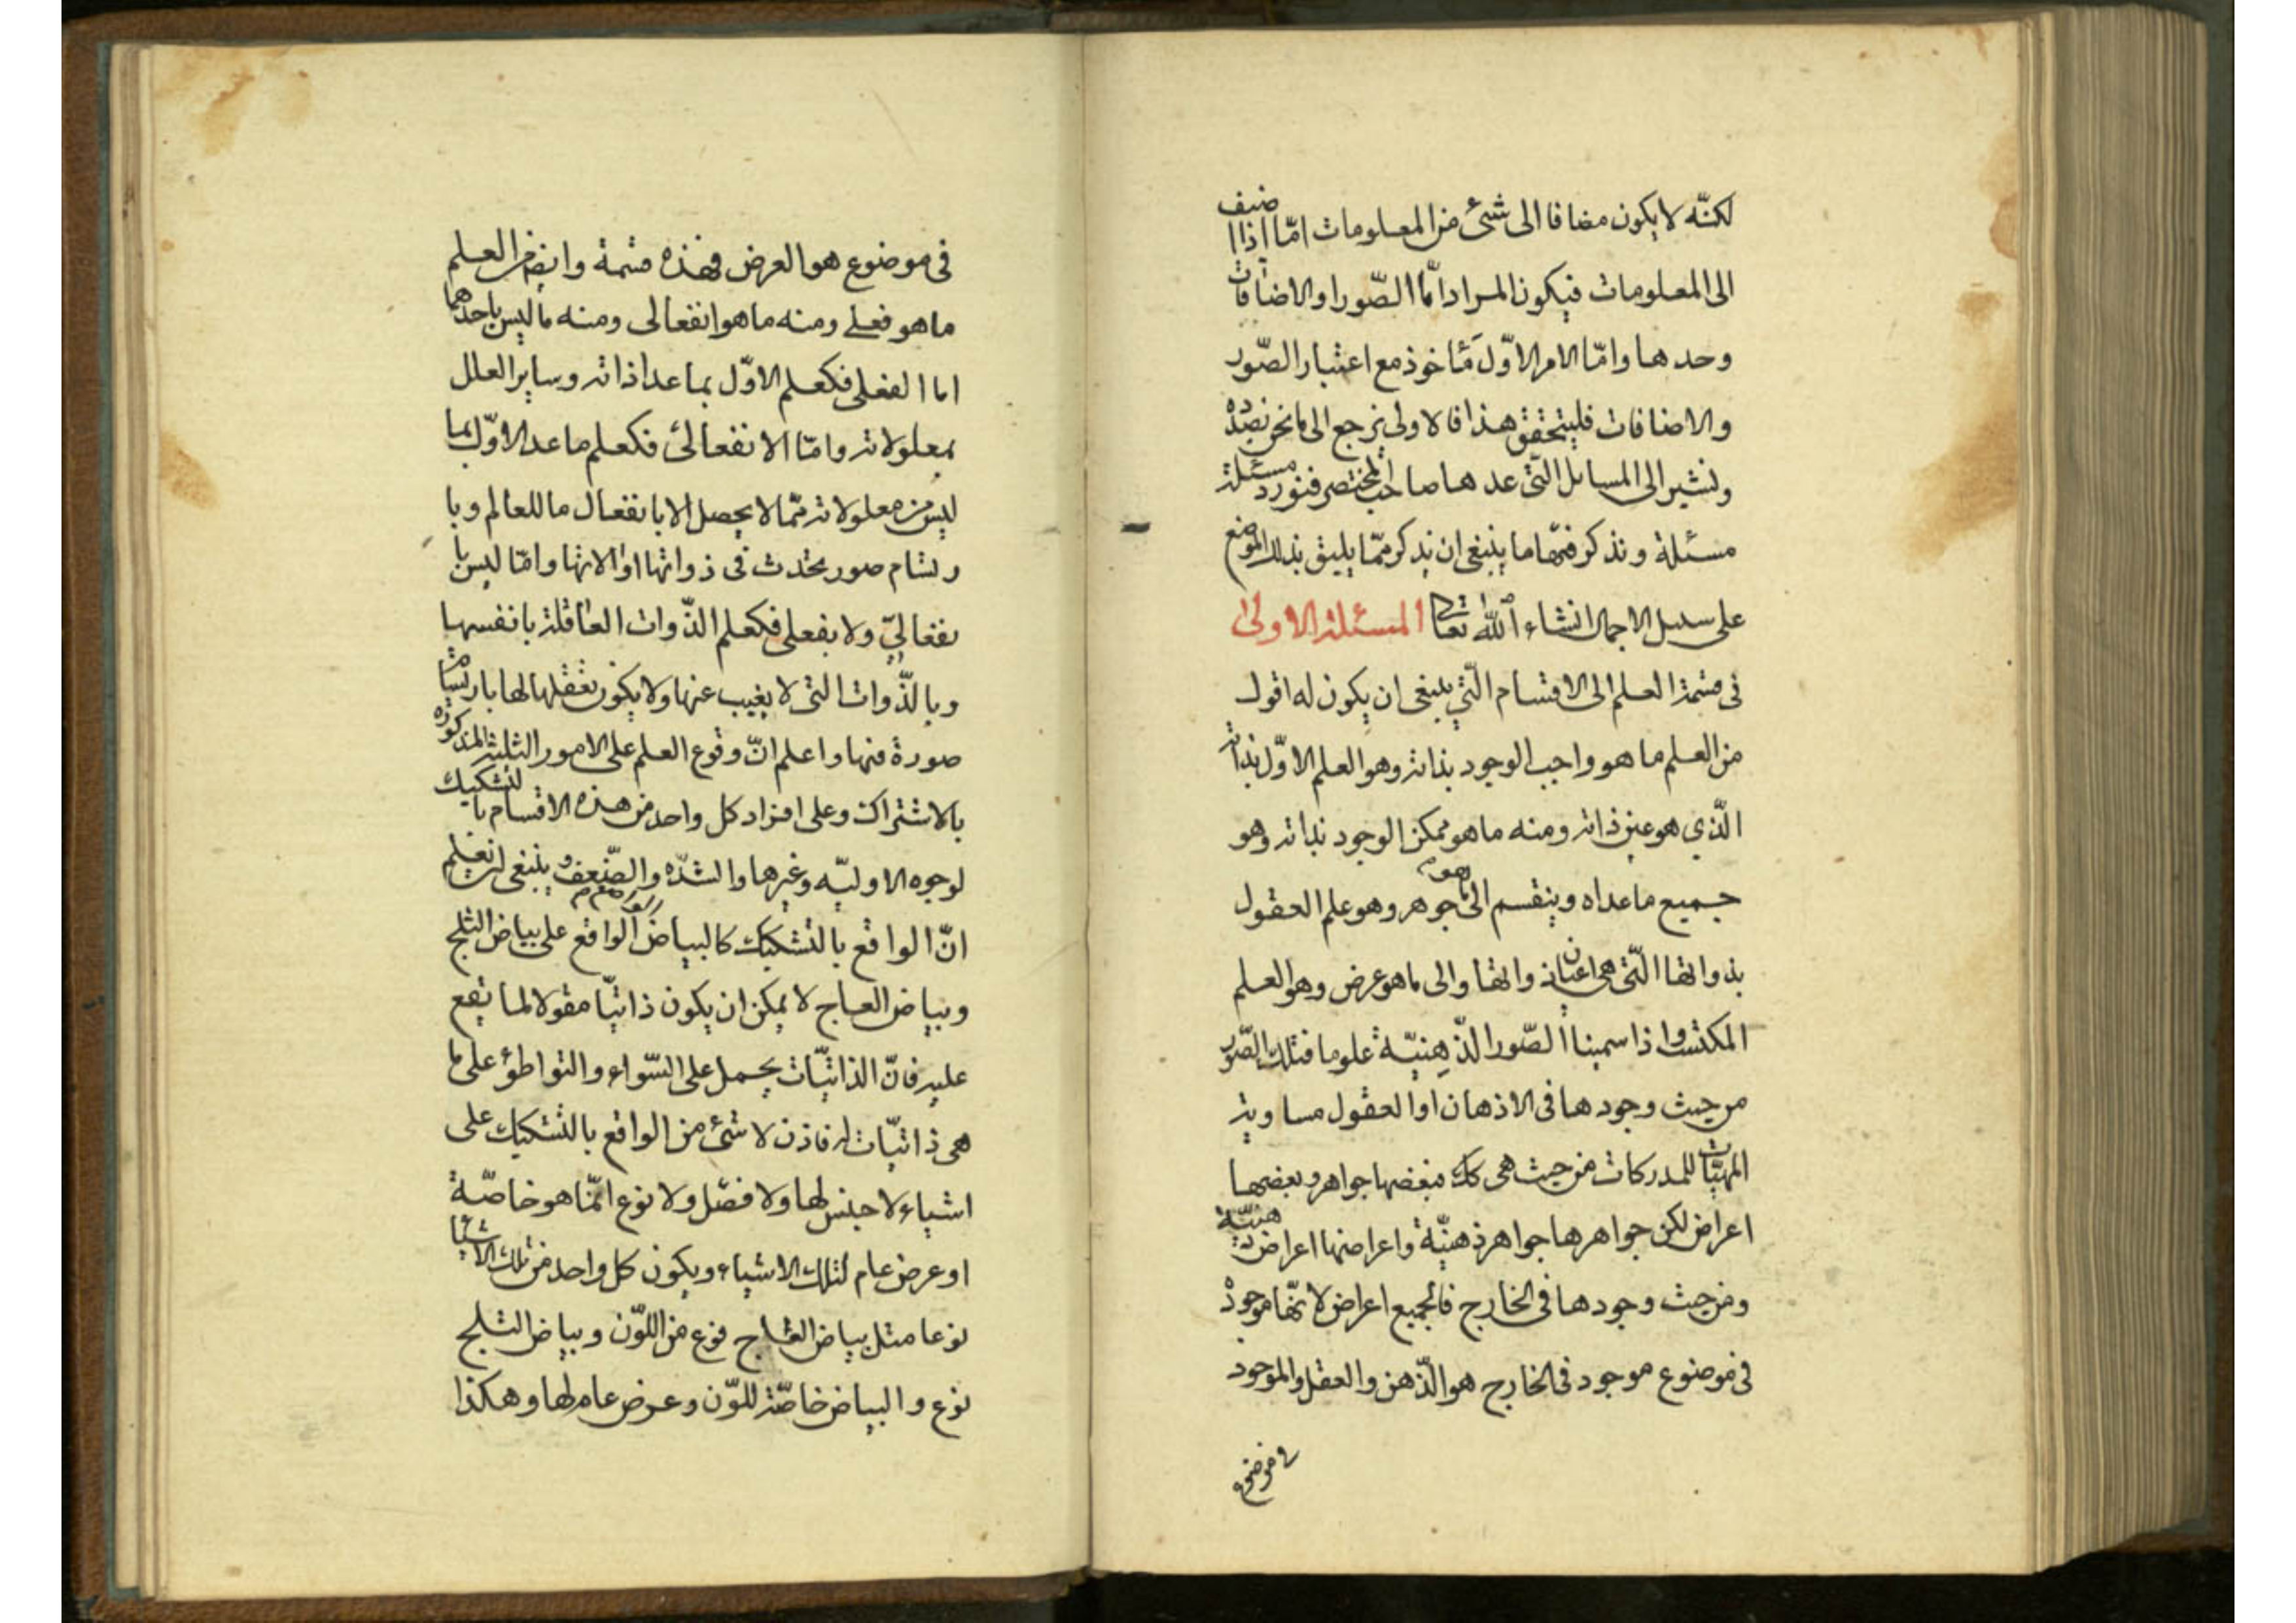 لكنّه لا يكون مضافا الى شئ من المعلومات امّا اذا اضيف
الى المعلومات فيكون المراد امّا الصّور او الاضافات
وحدها وامّا الامر الاوّل مأخوذ مع اعتبار الصّور
والاضافات فليتحقق هذا فالاولى نرجع الى ما نحن بصدده
ونشير الى المسايل الّتى عدها صاحب المختصر فنورد مسئلة
مسئلة ونذكر فيها ما ينبغى ان يذكر ممّا يليق بذلك الموضع
على سبيل الاجمال انشاء الله تعالى المسئلة الاولى
فى قسمة العلم الى الاقسام الّتى ينبغى ان يكون له اقول
من العلم ما هو واجب الوجود بذاته وهو العلم الاوّل بذاته
الّذي هو عين ذاته ومنه ما هو ممكن الوجود بذاته وهو
جميع ما عداه وينقسم الى ما هو جوهر وهو علم العقول
بذواتها الّتى هى اعيان ذواتها والى ما هو عرض وهو العلم
المكتسب واذا سمينا الصّور الذّهِنيّة علوما فتلك الصّور
من حيث وجودها فى الاذهان او العقول مساوية
المهيّات للمدركات من حيث هى كك فبعضها جواهر وبعضها
اعراض لكن جواهرها جواهر ذهنيّة واعراضها اعراض ذهنيّة
ومن حيث وجودها فى الخارج فالجميع اعراض لانّها موجودة
فى موضوع موجود فى الخارج هو الذّهن والعقل والموجود
فى موضوع
فى موضوع هو العرض فهذه قسمة وايضا من العلم
ما هو فعلى ومنه ما هو انفعالى ومنه ما ليس باحدهما
اما الفعلى فكعلم الاوّل بما عدا ذاته وساير العلل
بمعلولاته وامّا الانفعالى فكعلم ما عدا الاوّل بما
ليس من معلولاته ممّا لا يحصل الا بانفعال ما للعالم وبا
رتسام صور يحدث فى ذواتها او الاتها وامّا ليس با
نفعاليّ ولا بفعلى فكعلم الذّوات العاقلة بانفسها
وبالذّوات التى لا يغيب عنها ولا يكون تعقلها لها بارتسام
صورة فيها واعلم انّ وقوع العلم على الامور الثلثة المذكورة
بالاشتراك وعلى افراد كل واحد من هذه الاقسام با لتشكيك
لوجوه الاوليّه وغيرها والشدّه والضّعف وينبغى ان تعلم
انّ الواقع بالتشكيك كالبياض الواقع على بياض الثلج
وبياض العاج لا يمكن ان يكون ذاتيّا مقولا لما تقع
عليه فانّ الذاتيّات يحمل على السّواء والتواطؤ على ما
هى ذاتيّات له فاذن لا شئ من الواقع بالتشكيك على
اشياء لا جنس لها ولا فصّل ولا نوع انّما هو خاصّة
او عرض عام لتلك الاشياء ويكون كل واحد من تلك الاشيا
نوعا مثل بياض العاج نوع من اللّون وبياض الثلج
نوع والبياض خاصّة للّون وعرض عام لها وهكذا